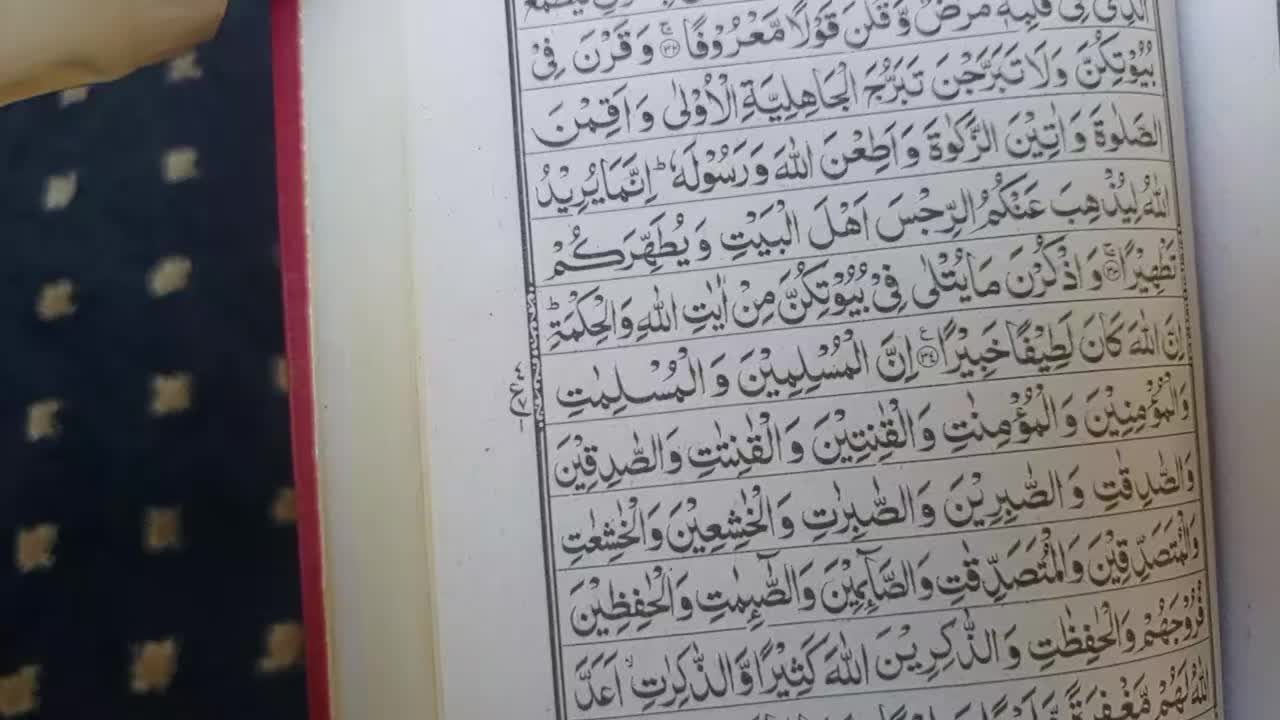 الَّذِىْ فِىْ قَلْبِهٖ مَرَضٌ وَّقُلْنَ قَوْلًا مَّعْرُوْفًا ۚ‏﴿۳۲﴾ وَقَرْنَ فِىْ
بُيُوْتِكُنَّ وَلَا تَبَرَّجْنَ تَبَرُّجَ الْجَاهِلِيَّةِ الْاُوْلٰى وَاَقِمْنَ
الصَّلٰوةَ وَاٰتِيْنَ الزَّكٰوةَ وَاَطِعْنَ اللّٰهَ وَرَسُوْلَهٗ ؕ اِنَّمَا يُرِيْدُ
اللّٰهُ لِيُذْهِبَ عَنْكُمُ الرِّجْسَ اَهْلَ الْبَيْتِ وَيُطَهِّرَكُمْ
تَطْهِيْرًا ۚ‏﴿۳۳﴾ وَاذْكُرْنَ مَا يُتْلٰى فِىْ بُيُوْتِكُنَّ مِنْ اٰيٰتِ اللّٰهِ وَالْحِكْمَةِ ؕ
اِنَّ اللّٰهَ كَانَ لَطِيْفًا خَبِيْرًا ﴿۳۴﴾ اِنَّ الْمُسْلِمِيْنَ وَالْمُسْلِمٰتِ
وَالْمُؤْمِنِيْنَ وَالْمُؤْمِنٰتِ وَالْقٰنِتِيْنَ وَالْقٰنِتٰتِ وَالصّٰدِقِيْنَ
وَالصّٰدِقٰتِ وَالصّٰبِرِيْنَ وَالصّٰبِرٰتِ وَالْخٰشِعِيْنَ وَالْخٰشِعٰتِ
وَالْمُتَصَدِّقِيْنَ وَالْمُتَصَدِّقٰتِ وَالصَّآئِمِيْنَ وَالصّٰٓئِمٰتِ وَالْحٰفِظِيْنَ
فُرُوْجَهُمْ وَالْحٰفِظٰتِ وَالذّٰكِرِيْنَ اللّٰهَ كَثِيْرًا وَّالذّٰكِرٰتِ ۙ اَعَدَّ
اللّٰهُ لَهُمْ مَّغْفِرَةً